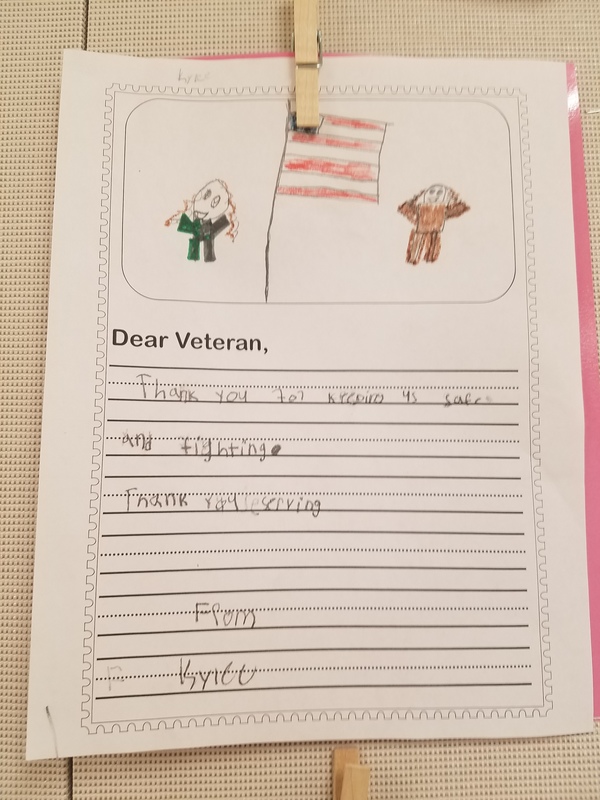 Dear Veteran,
Thank you for keeping us safe
and fighting.
Thank you serving
From
F